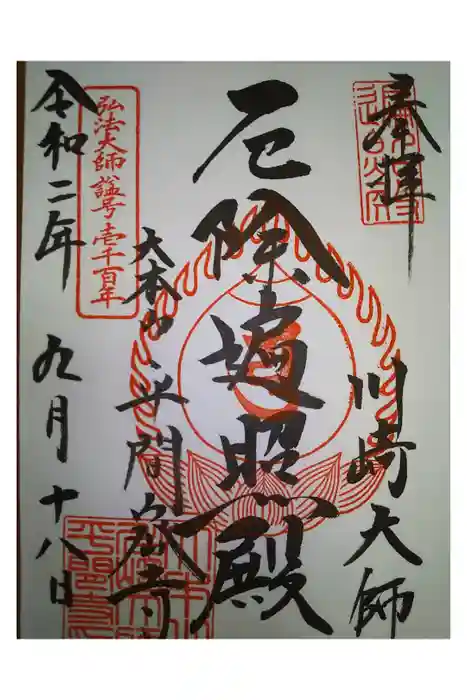 奉拝
川崎大師
厄除遍照殿
大本山
平間寺
弘法大師 諡号 壱千百年
令和二年 九月 十八日